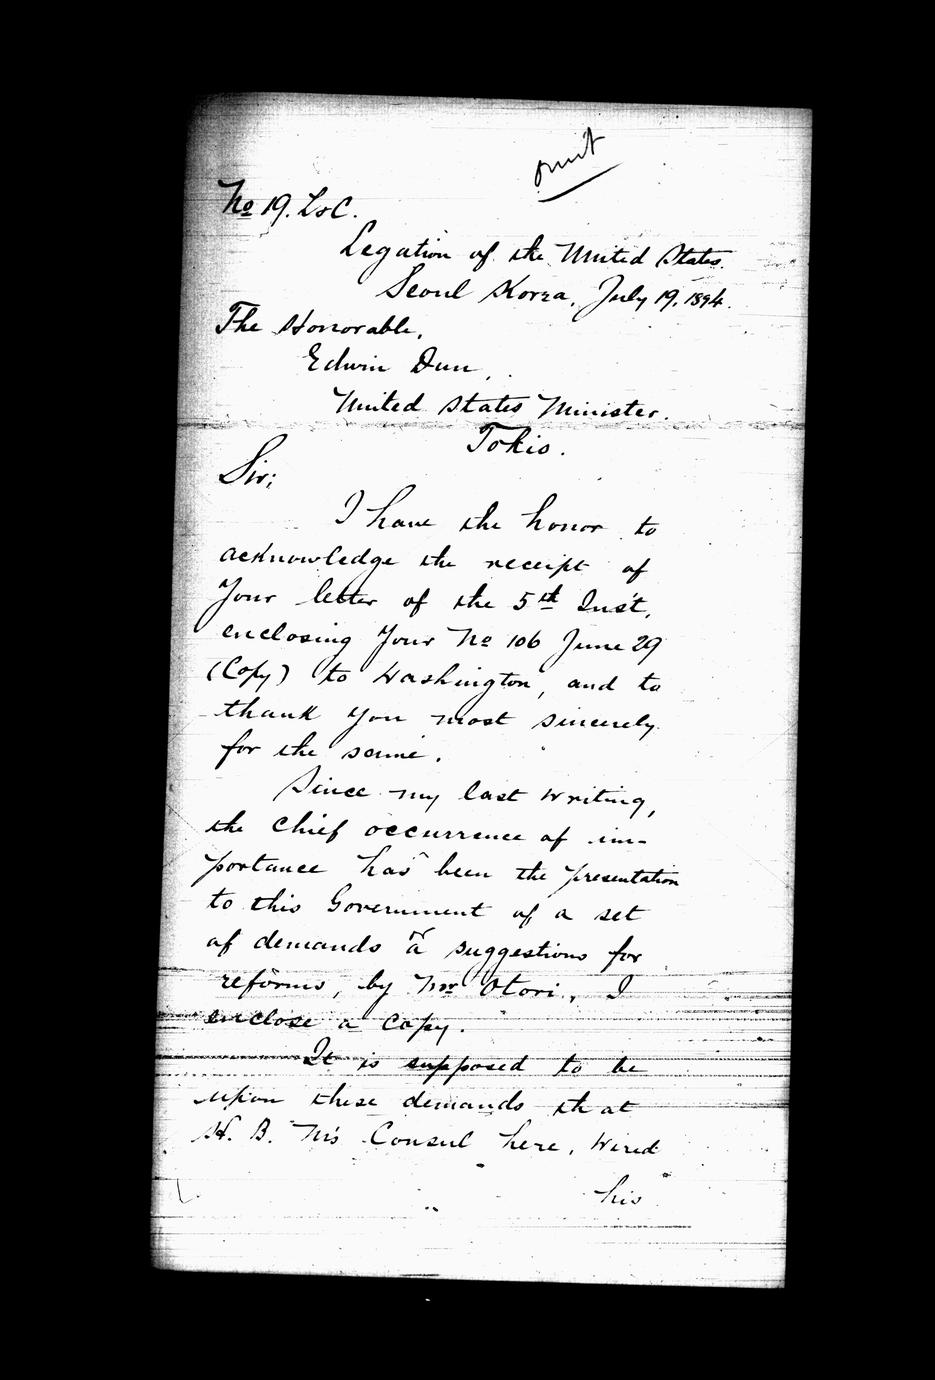 omit
No 19. L&C.
Legation of the United States.
Seoul Korea, July 19, 1894.
The Honorable,
Edwin Dun,
United States Minister.
Tokio.
Sir;
I have the honor to
acknowledge the receipt of
Your letter of the 5th Inst,
enclosing Your No 106 June 29
(Copy) to Washington, and to
thank you most sincerely
for the same.
Since my last writing,
the chief occurrence of im-
portance has been the presentation
to this Government of a set
of demands or suggestions for
reforms, by Mr Otori, I
enclose a copy.
It is supposed to be
upon these demands that
H. B. M's Consul here, wired
his